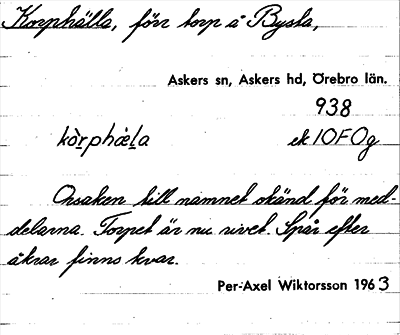 Korphälla, förr torp å Bysta,
Askers sn, Askers hd, Örebro län.
938
kòr̲phäl̲a ek 10F0g
Orsaken till namnet okänd för med-
delarna. Torpet är nu rivet. Spår efter
åkrar finns kvar.
Per-Axel Wiktorsson 1963